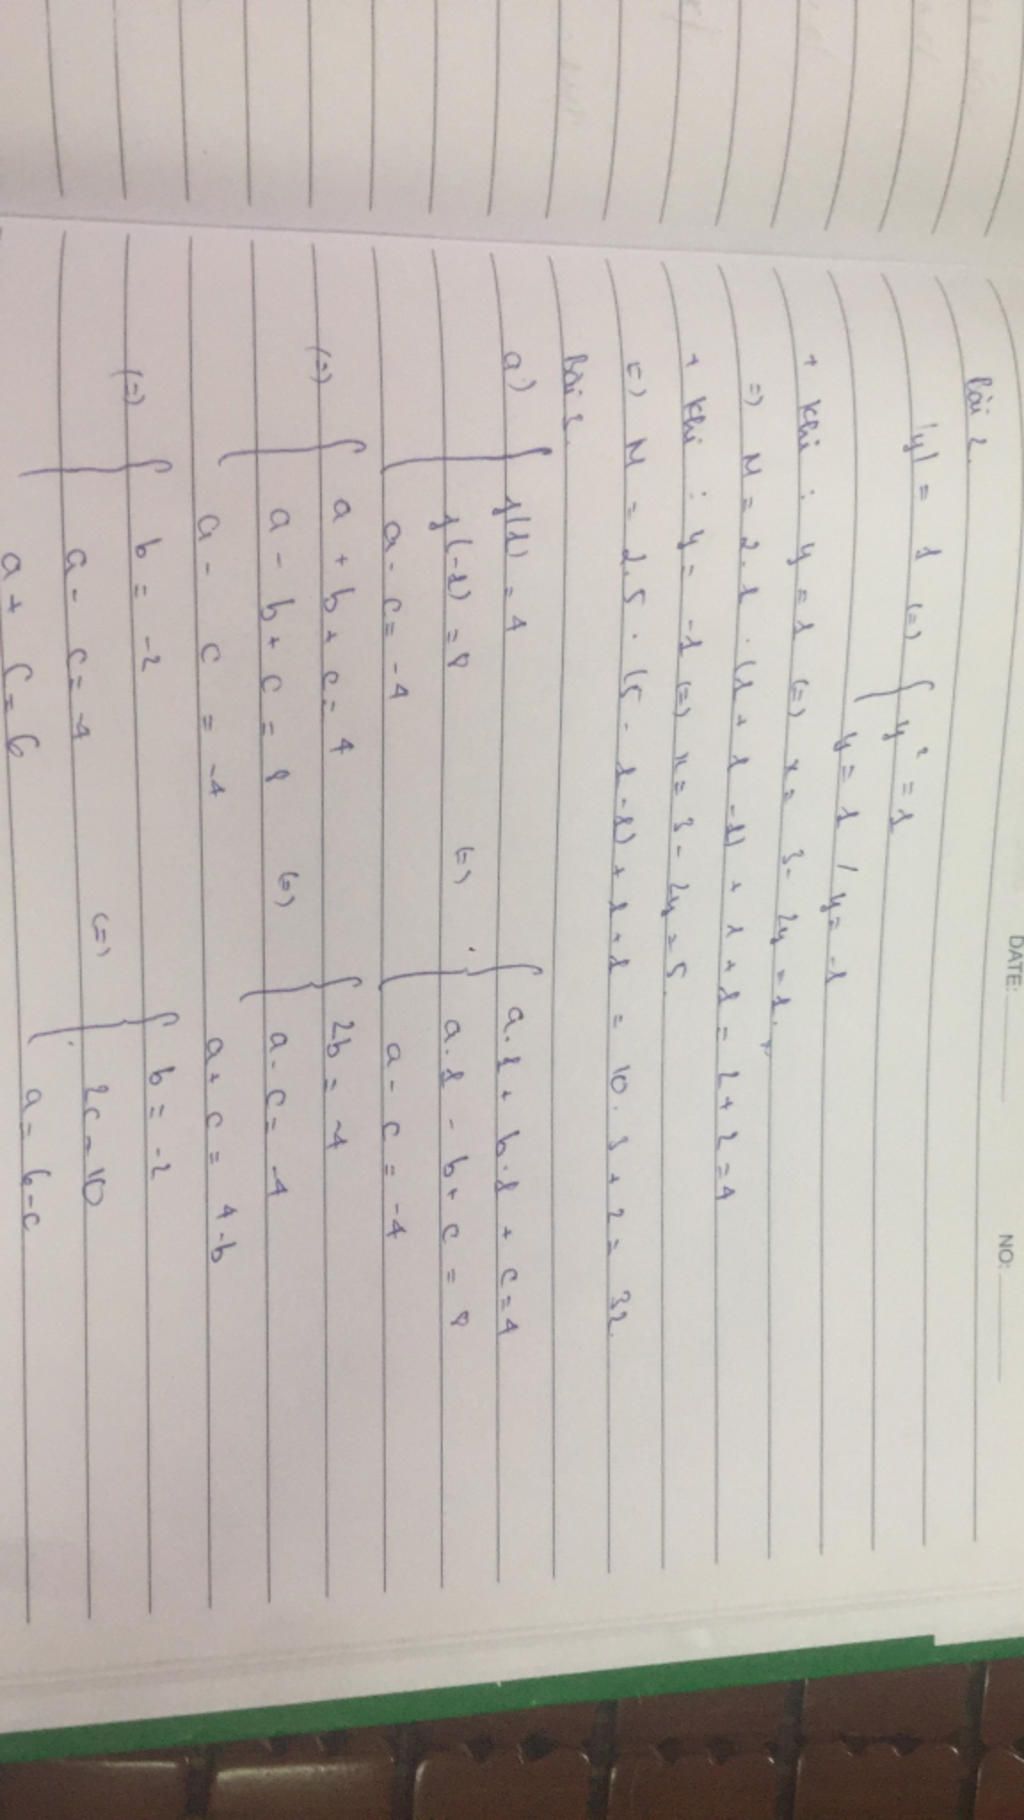 DATE: NO:
Bài 2.
|y| = 1 (=) { y² = 1
y = 1 / y = -1
+ Khi : y = 1 (=) x = 3 - 2y = 1.
=) M = 2.1 . (1 + 1 - 1) + 1 + 1 = 2 + 2 = 4
+ Khi : y = -1 (=) x = 3 - 2y = 5.
=) M = 2.5 . (5 - 1 - 1) + 1 + 1 = 10 . 3 + 2 = 32.
Bài 3.
a) { f(1) = 4 (=) { a.1 + b.1 + c = 4
f(-1) = 8 a.1 - b + c = 8
a - c = -4 a - c = -4
(=) { a + b + c = 4 (=) { 2b = -4
a - b + c = 8 a - c = -4
a - c = -4 a + c = 4 - b
(=) { b = -2 (=) { b = -2
a - c = -4 2c = 10
a + c = 6 a = 6 - c